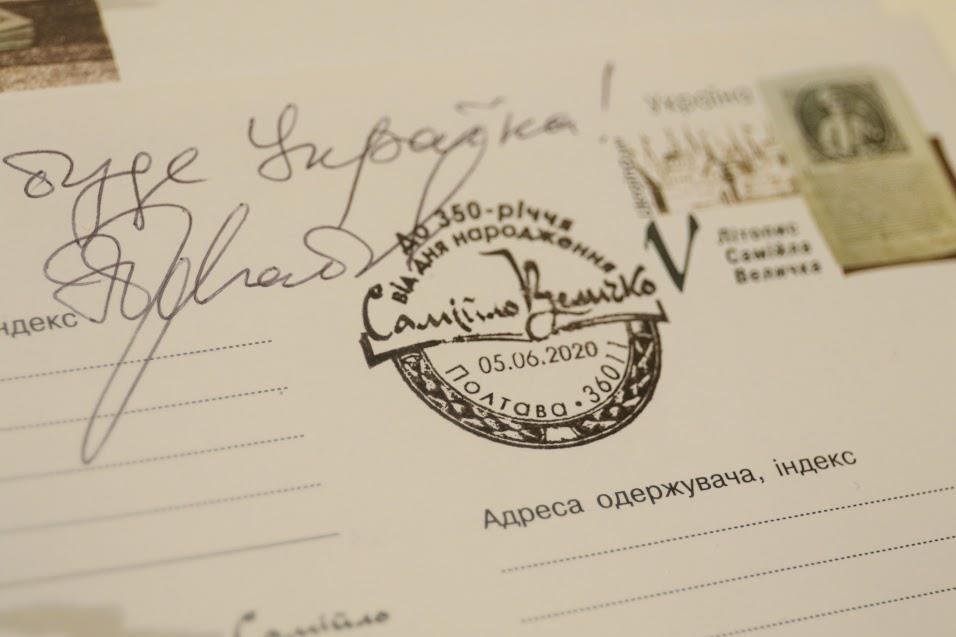 буде Україна!
Україна
До 350-річчя
від дня народження
Самійло Величко
05.06.2020
Полтава • 36011
V
Літопис
Самійла
Величка
ндекс
Адреса одержувача, індекс
Самійло